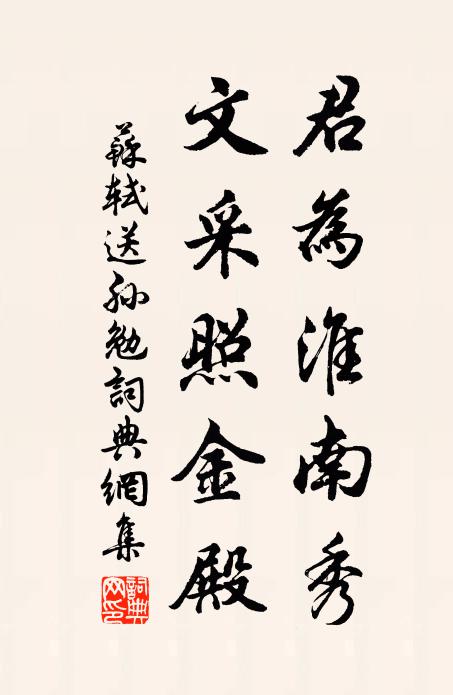 君為淮南秀
文采照金殿
蘇軾送孙勉詞典網集
詞典
网印